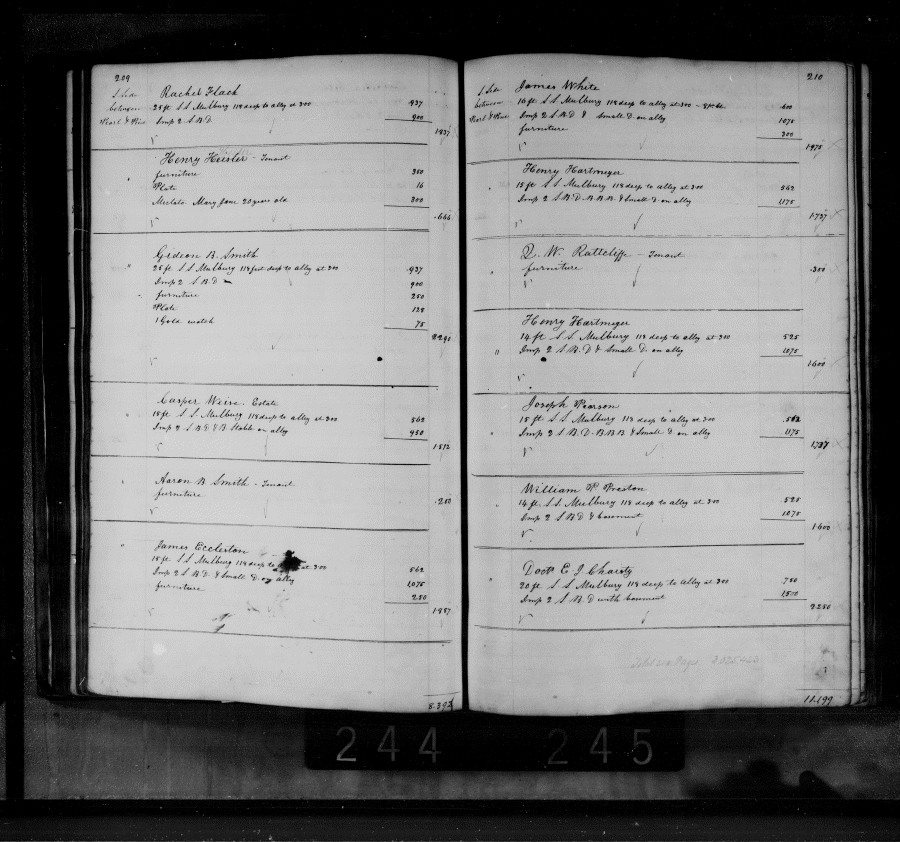 209
S. Side Rachel Flack
between 25 ft S S Mulbury 118 deep to alley at 300 937
Pearl & Pine Imp 2 S B D 900
1837
Henry Heisler - Tenant
" furniture 350
Plate 16
Mulato Mary Jane 20 years old 300
666
Gideon B. Smith
" 25 ft S S Mulbury 118 feet deep to alley at 300 937
Imp 2 S B D 900
furniture 250
Plate 128
1 Gold watch 75
2290
Casper Weise. Estate
" 15 ft S. S. Mulbury 118 deep to alley at 300 562
Imp 2 S B D & B. Stable on alley 950
1512
" Aaron B Smith - Tenant
furniture 250
" James Eccleston
15 ft S S Mulbury 118 deep to at 300 562
Imp 2 S B D. & Small D. on alley 1075
furniture 250
1887
8.392
210
S. Side James White
between 16 ft S S Mulbury 118 deep to alley at 300 600
Pearl & Pine Imp 2 S B D & Small D. on alley 1075
furniture 300
1975
Henry Hartmeyer
" 15 ft S S Mulbury 118 deep to alley at 300 562
Imp 2 S B. D. B. B. B. & Small D. on alley 1175
1737
Q. W. Rattcliffe - Tenant
" furniture 300
Henry Hartmeyer
14 ft S S Mulbury 118 deep to alley at 300 525
" Imp 2 S B. D & Small D. on alley 1075
1600
Joseph Pearson
15 ft S S Mulbury 118 deep to alley at 300 562
" Imp 2 S B. D. B. B. B. & Small D. on alley 1175
1737
William P Preston
" 14 ft S. S. Mulbury 118 deep to alley at 300 525
Imp 2 S B D & basement 1075
1600
Doctr E J Charsty
" 20 ft S S Mulbury 118 deep to alley at 300 750
Imp 2 S B. D with basement 1500
2250
11.199
244 245